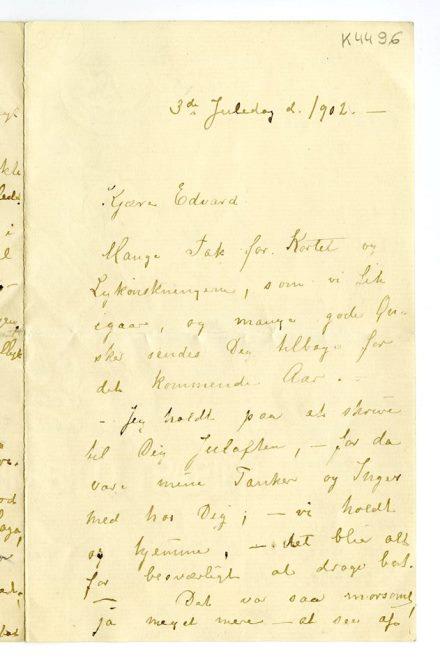 K4496
3de Juledag d. 1902. —
Kjære Edvard
Mange Tak for Kortet og
Lykønskningerne, som vi fik
igaar, og mange gode Øn-
sker sendes Dig tilbage for
det kommende Aar. —
— Jeg holdt paa at skrive
til Dig Juleaften, — for da
vare mine Tanker og Inger
med hos Dig; — vi holdt
os hjemme, — det blev alt
for besværligt at drage bort.
— Det var saa morsomt,
ja meget mere — at see af